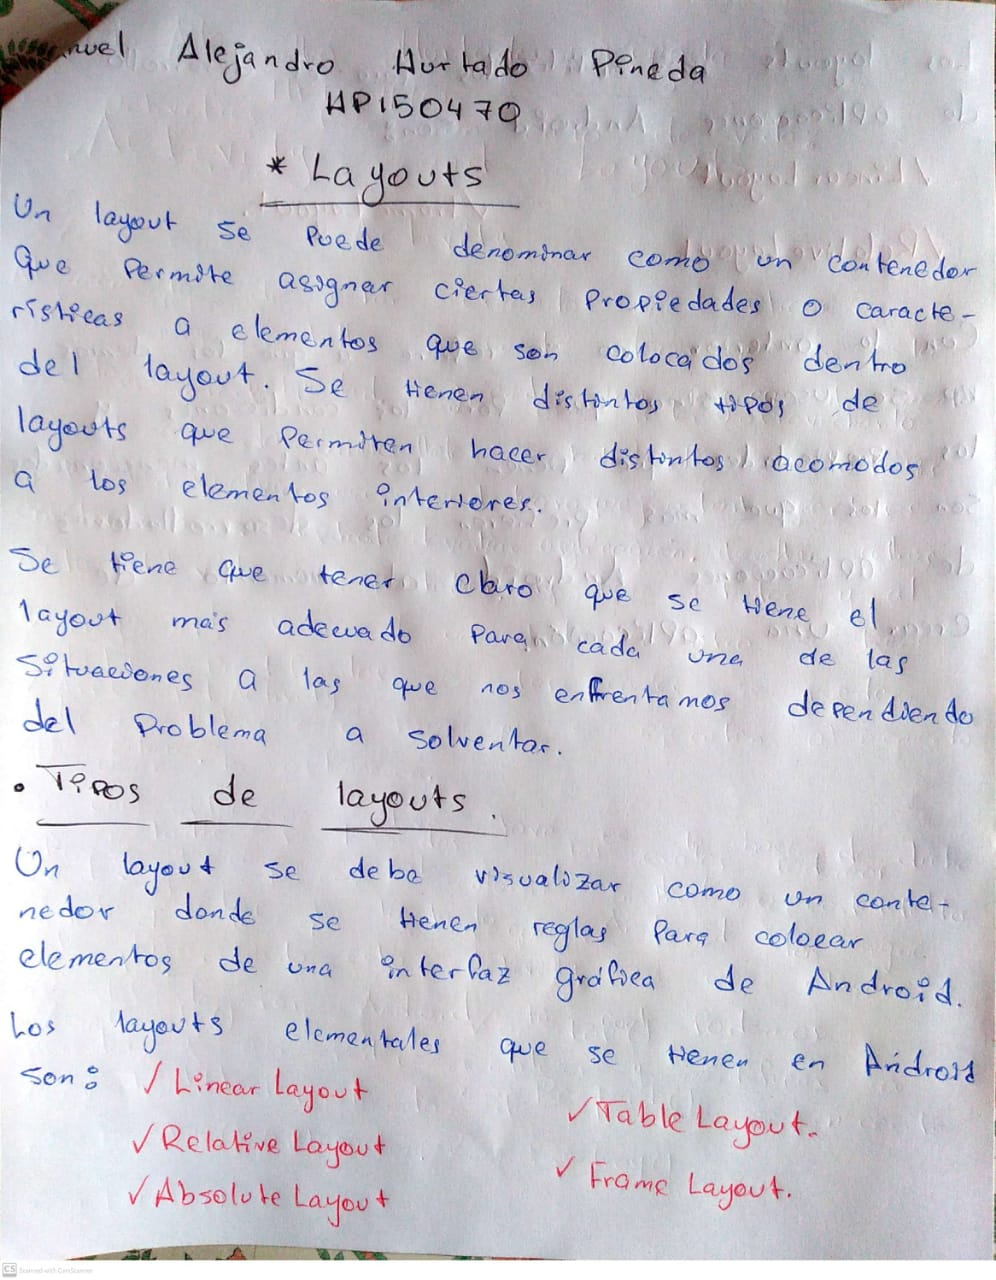 nuel Alejandro Hurtado Pineda
HP150470
* Layouts
Un layout se puede denominar como un contenedor
que permite asignar ciertas propiedades o caracte-
rísticas a elementos que son colocados dentro
del layout. Se tienen distintos tipos de
layouts que permiten hacer distintos acomodos
a los elementos interiores.
Se tiene que tener claro que se tiene el
layout más adecuado para cada una de las
situaciones a las que nos enfrentamos dependiendo
del problema a solventar.
• Tipos de layouts.
Un layout se debe visualizar como un conte-
nedor donde se tienen reglas para colocar
elementos de una interfaz gráfica de Android.
Los layouts elementales que se tienen en Android
son:
✓ Linear Layout
✓ Relative Layout
✓ Absolute Layout
✓ Table Layout.
✓ Frame Layout.
CS Scanned with CamScanner